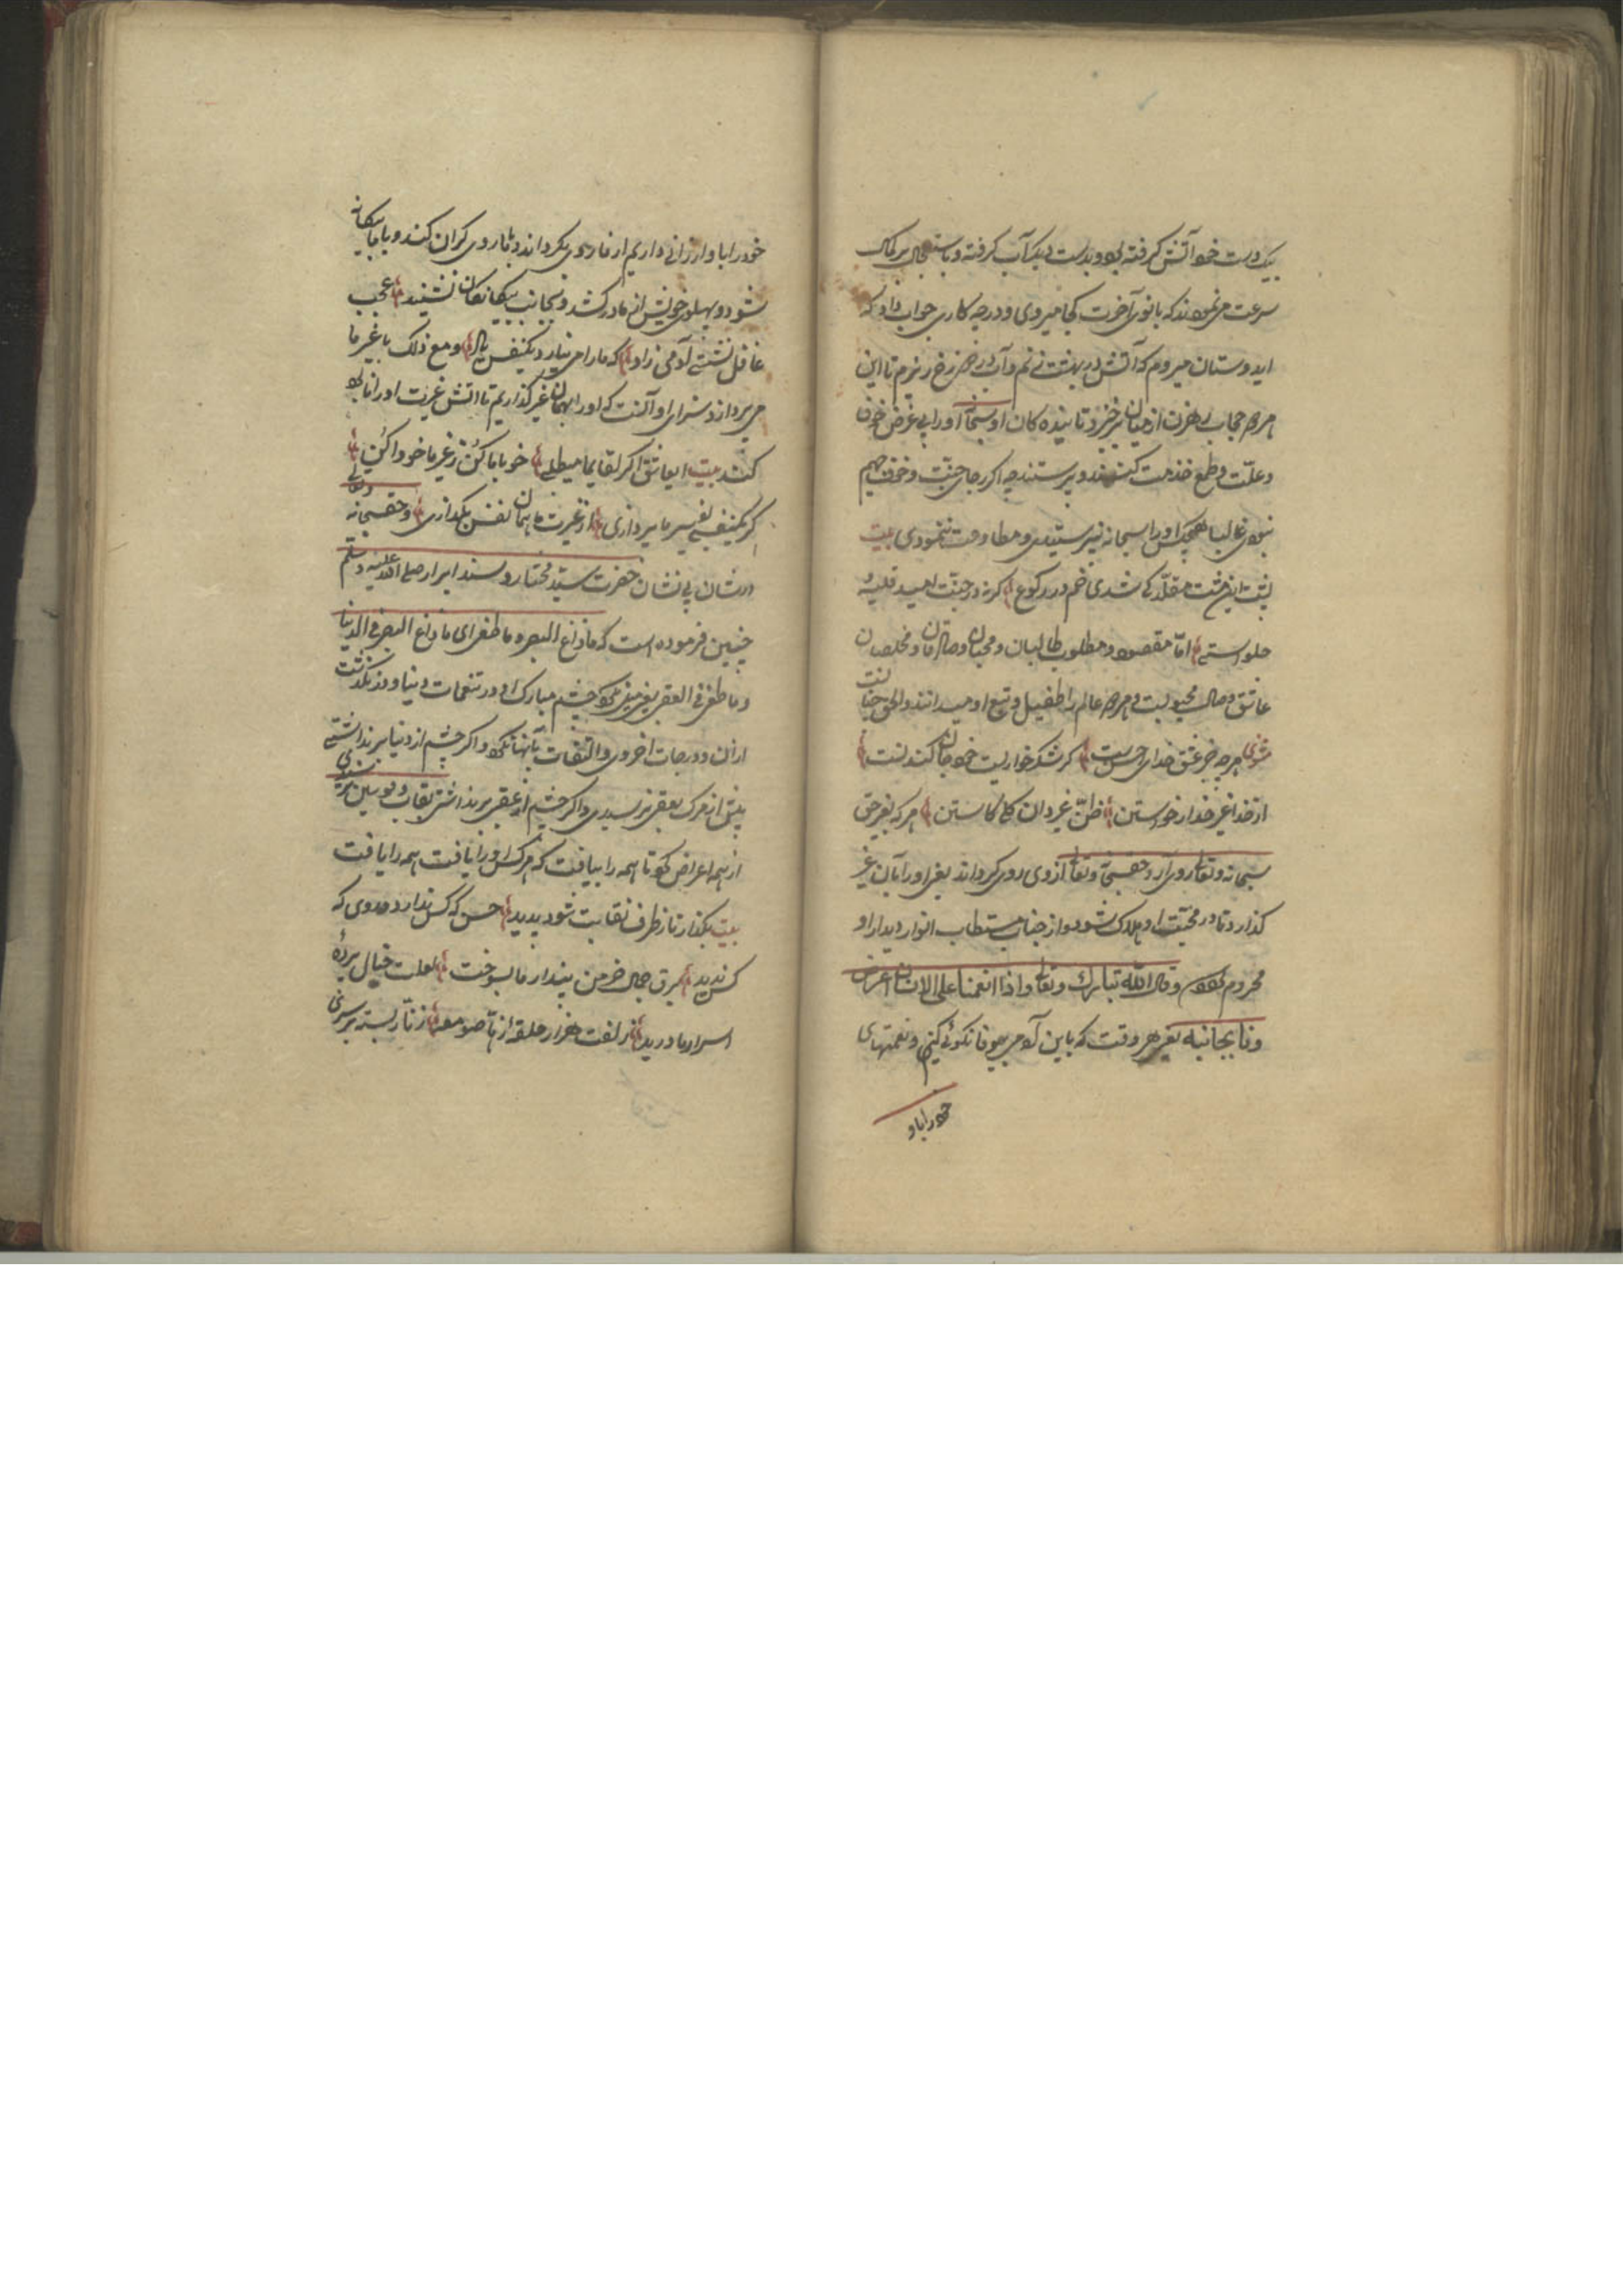 بیکدست خود آتش کرفته بود و بدست دیکر آب کرفته و باستعجال بر کمال
سرعت می نمودند که بانوی آخرت کجا میروی و در چه کاری جواب داد که
ایدوستان میروم که آتش در بهشت زنم و آب در دوزخ ریزم تا این
هر دو حجاب رهزن از میان برخیزد تا بنده کان او سبحانه او را بی غرض خوف
و علّت و طمع خدمت کنند و پرستند چه اکر رجای جنّت و خوف جهیم
نبودی غالبا هیچکس او را سبحانه نپرستیدی و مطاوعت ننمودی بیت
پشت این مشت مقلّد کی شدی خم در رکوع کر نه در جنّت امید قلیه و
حلواستی امّا مقصود و مطلوب طالبان و محبان و صادقان و مخلصان
عاشق وصال محبوبست و هر دو عالم را طفیل و تبع او میدانند و الحق چنانست
مثنوی هر چه جز عشق خدای احسن است کر شکر خواریست خود جان کندنست
از خدا غیر خدا را خواستن ظنّ غیر دان کلی کاستن هر که بغیر حق
سبحانه و تعالی روی آرد حقسبحانه و تعالی از وی روی کرداند یعنی او را بآن غیر
کذارد تا در محبّت او هلاک شود و از جناب مستطاب انوار دیدار او
محروم بود و قال الله تبارک و تعالی و اذا انعمنا علی الانسان اعرض
و نا بجانبه یعنی هر وقت که باین آدمی بیوفا نکوئی کنیم و نعمتهای
خود را باو
خود را باو ارزانی داریم از ما روی بکرداند و بما روی کران کند و با ما بیکانه
شود و پهلوی خویش از ما در کشد و بجانب بیکانکان نشیند عجب
غافل نشستی آدمی زاد که ما را می نیارد یکنفس یاد و مع ذلک با غیر ما
می پردازد سزای او آنست که او را بهمان غیر کذاریم تا آتش غیرت او را نابود
کند بیت ایعاشق اکر لقای ما میطلبی خو با ما کن ز غیر ما خو وا کن
کر یکنفسی بغیر ما پردازی از غیرت ما بهمان نفس بکدازی و حقسبحانه و تعالی
در شان بی نشان حضرت سیّد مختار و سند ابرار صلی الله علیه و سلم
چنین فرموده است که ما زاغ البصر و ما طغی ای ما زاغ البصر فی الدنیا
و ما طغی فی العقبی یعنی میل نکرد چشم مبارک او در تنعمات دنیا و در نکذشت
از آن و درجات اخروی و التفات بآنها نکرد و اکر چشم از دنیا برنداشتی
پیش از مرک بعقبی نرسیدی و اکر چشم از عقبی برنداشتی بقاب قوسین نرسیدی
از همه اعراض کرد تا همه را بیافت که هر کس او را یافت همه را یافت
بیت بکذار تا ز طرف نقابت شود پدید حسن که کس ندارد و روی که
کس ندید برق جمال خرمن پندار ما بسوخت لعلت خیال پرده
اسرار ما درید زلفت هزار حلقه از ما صومعه زنّار بسته بر سر